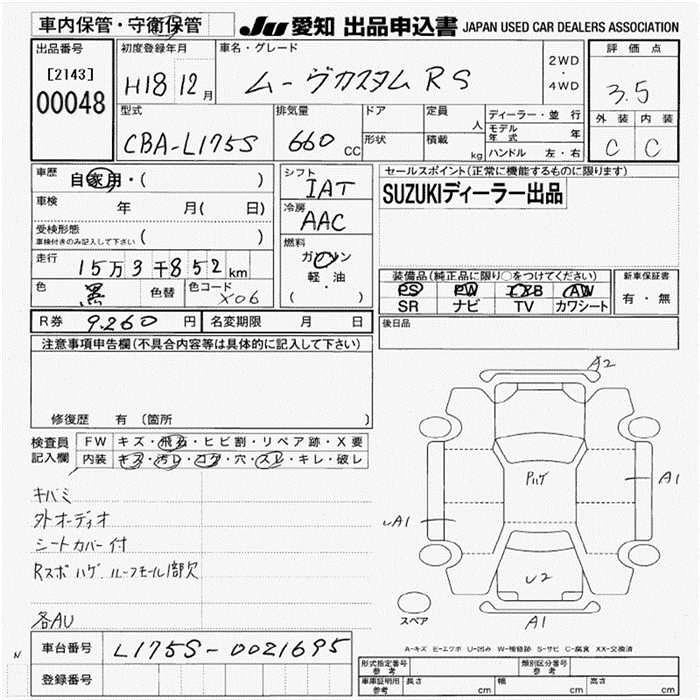 車内保管・守衛保管
JU 愛知 出品申込書 JAPAN USED CAR DEALERS ASSOCIATION
出品番号
[2143]
00048
初度登録年月
H18 12月
車名・グレード
ムーヴカスタムRS
2WD
・
4WD
評価点
3.5
外装 内装
C C
型式
CBA-L175S
排気量
660 CC
ドア
形状
定員
人
積載
kg
ディーラー・並行
モデル年式 年
ハンドル 左・右
車歴 自家用・( )
車検 年 月( 日)
受検形態
車検付きのみ記入して下さい ( )
走行 15万3千852km
色 黒 色替 色コード X06
シフト
IAT
冷房
AAC
燃料
ガソリン
軽・油
( )
セールスポイント(正常に機能するものに限ります)
SUZUKIディーラー出品
装備品(純正品に限り○をつけてください)
PS PW エアB AW
SR ナビ TV カワシート
新車保証書
有・無
R券 9.260 円 名変期限 月 日
後日品
注意事項申告欄(不具合内容等は具体的に記入して下さい)
修復歴 有 〔箇所
検査員
記入欄
FW キズ・飛石・ヒビ割・リペア跡・X要
内装 キズ・汚レ・コゲ・穴・スレ・キレ・破レ
キバミ
外オーディオ
シートカバー付
Rスポハゲ.ルーフモール1部欠
各AU
A2
Pハゲ
A1
A1
U2
A1
スペア
A-キズ E-エクボ U-凹み W-補修跡 S-サビ C-腐食 XX-交換済
N
車台番号 L175S-0021695
登録番号
形式指定番号
参考
類別区分番号
参考
車庫証明用
参考
長さ cm 幅 cm 高さ cm